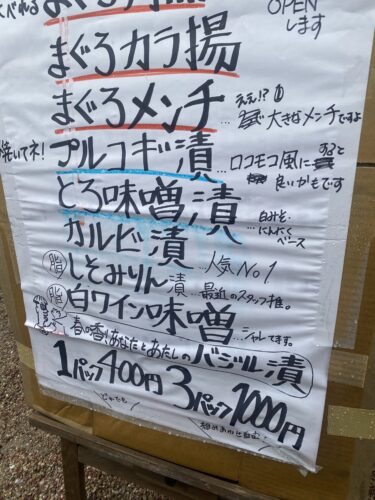 べれる
OPEN
します
まぐろカラ揚
まぐろメンチ
…ええ!? 大きなメンチですよ
焼いてネ!
プルコギ漬
…ロコモコ風にすると
良いかもです
とろ味噌漬
白みそ・
…にんにく
ベース
カルビ漬
…人気No.1
脂 しそみりん漬 …最近のスタッフ推。
脂 白ワイン味噌
…シャレてます。
春の香!あなたとあたしのバジル漬
1パック400円 3パック1000円
どれでも
組み合わせ自由